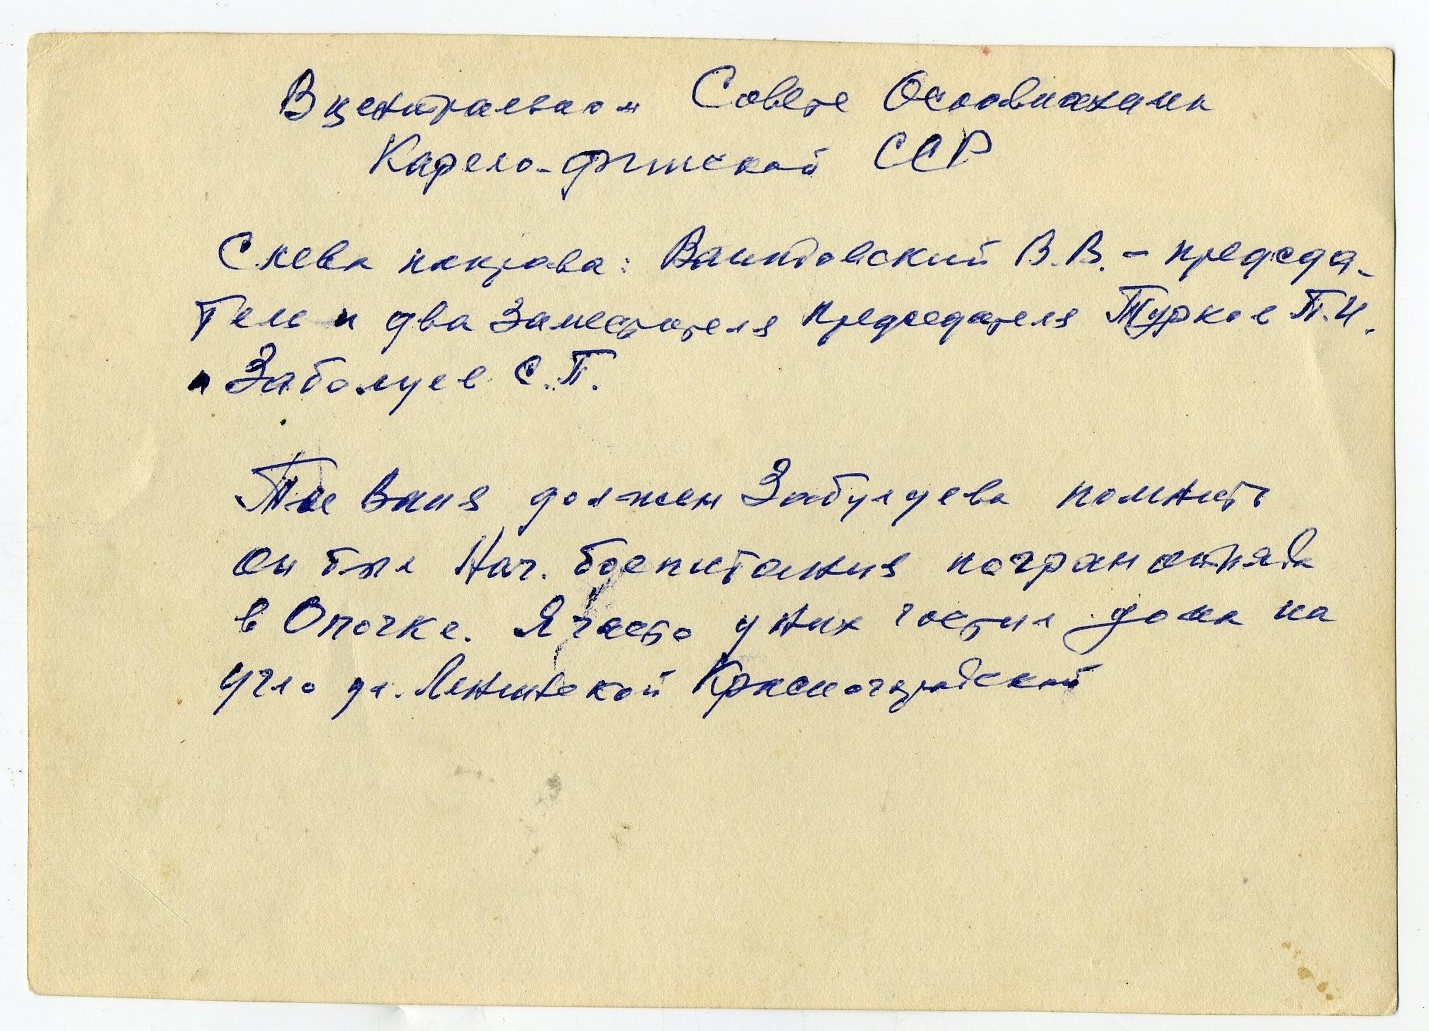 В центральном Совете Осоавиахима
Карело-финской ССР
Слева направо: Ваинтовский В.В. – председа-
тель и два заместителя председателя Турков П.И.
и Заболуев С.П.
Ты Ваня должен Забулуева помнить
он был Нач. боепитания погранотряда
в Опочке. Я часто у них гостил дома на
углу ул. Ленинской Красногородской